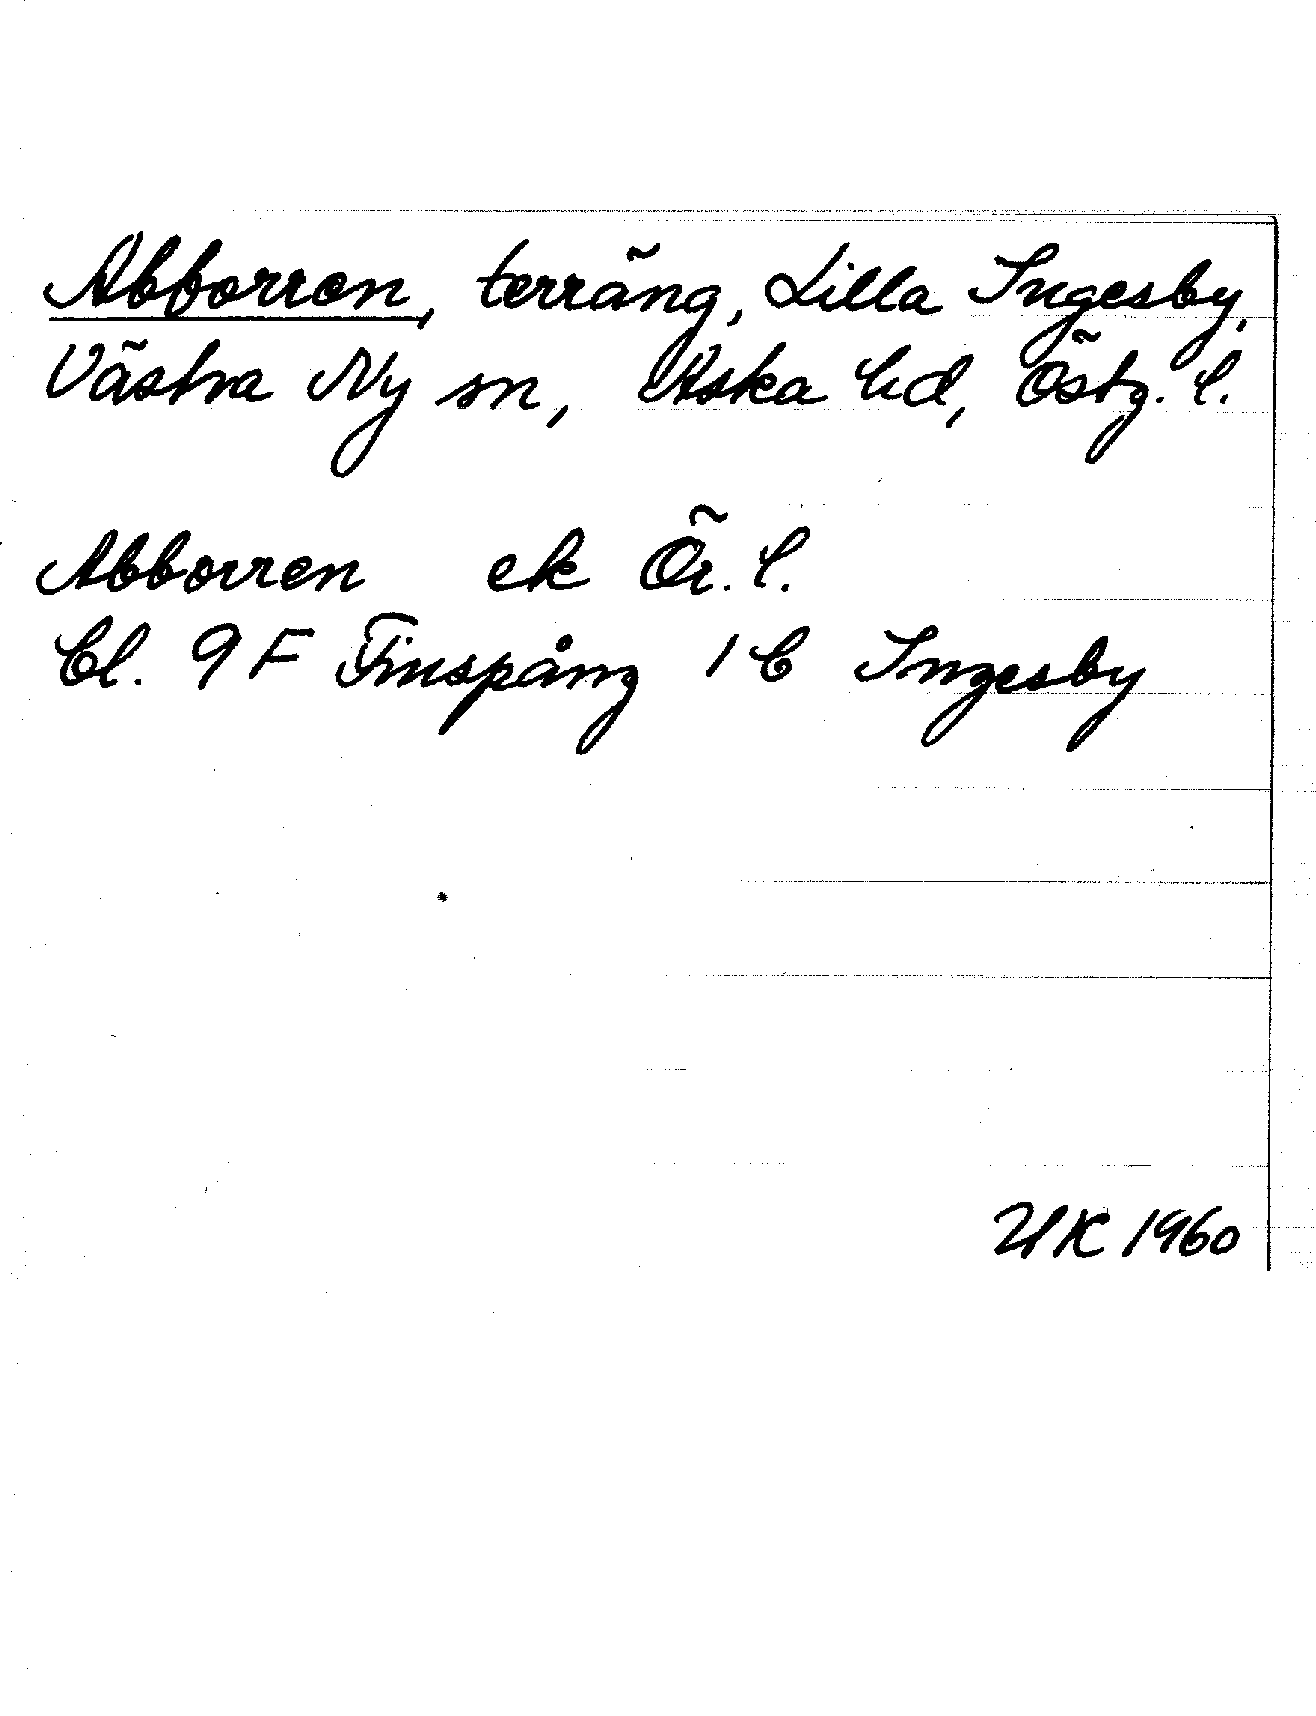 Abborren, terräng, Lilla Ingesby,
Västra Ny sn, Aska hd, Östg. l.
Abborren ek Ör. l.
Bl. 9 F Finspång 1 b Ingesby
UK 1960